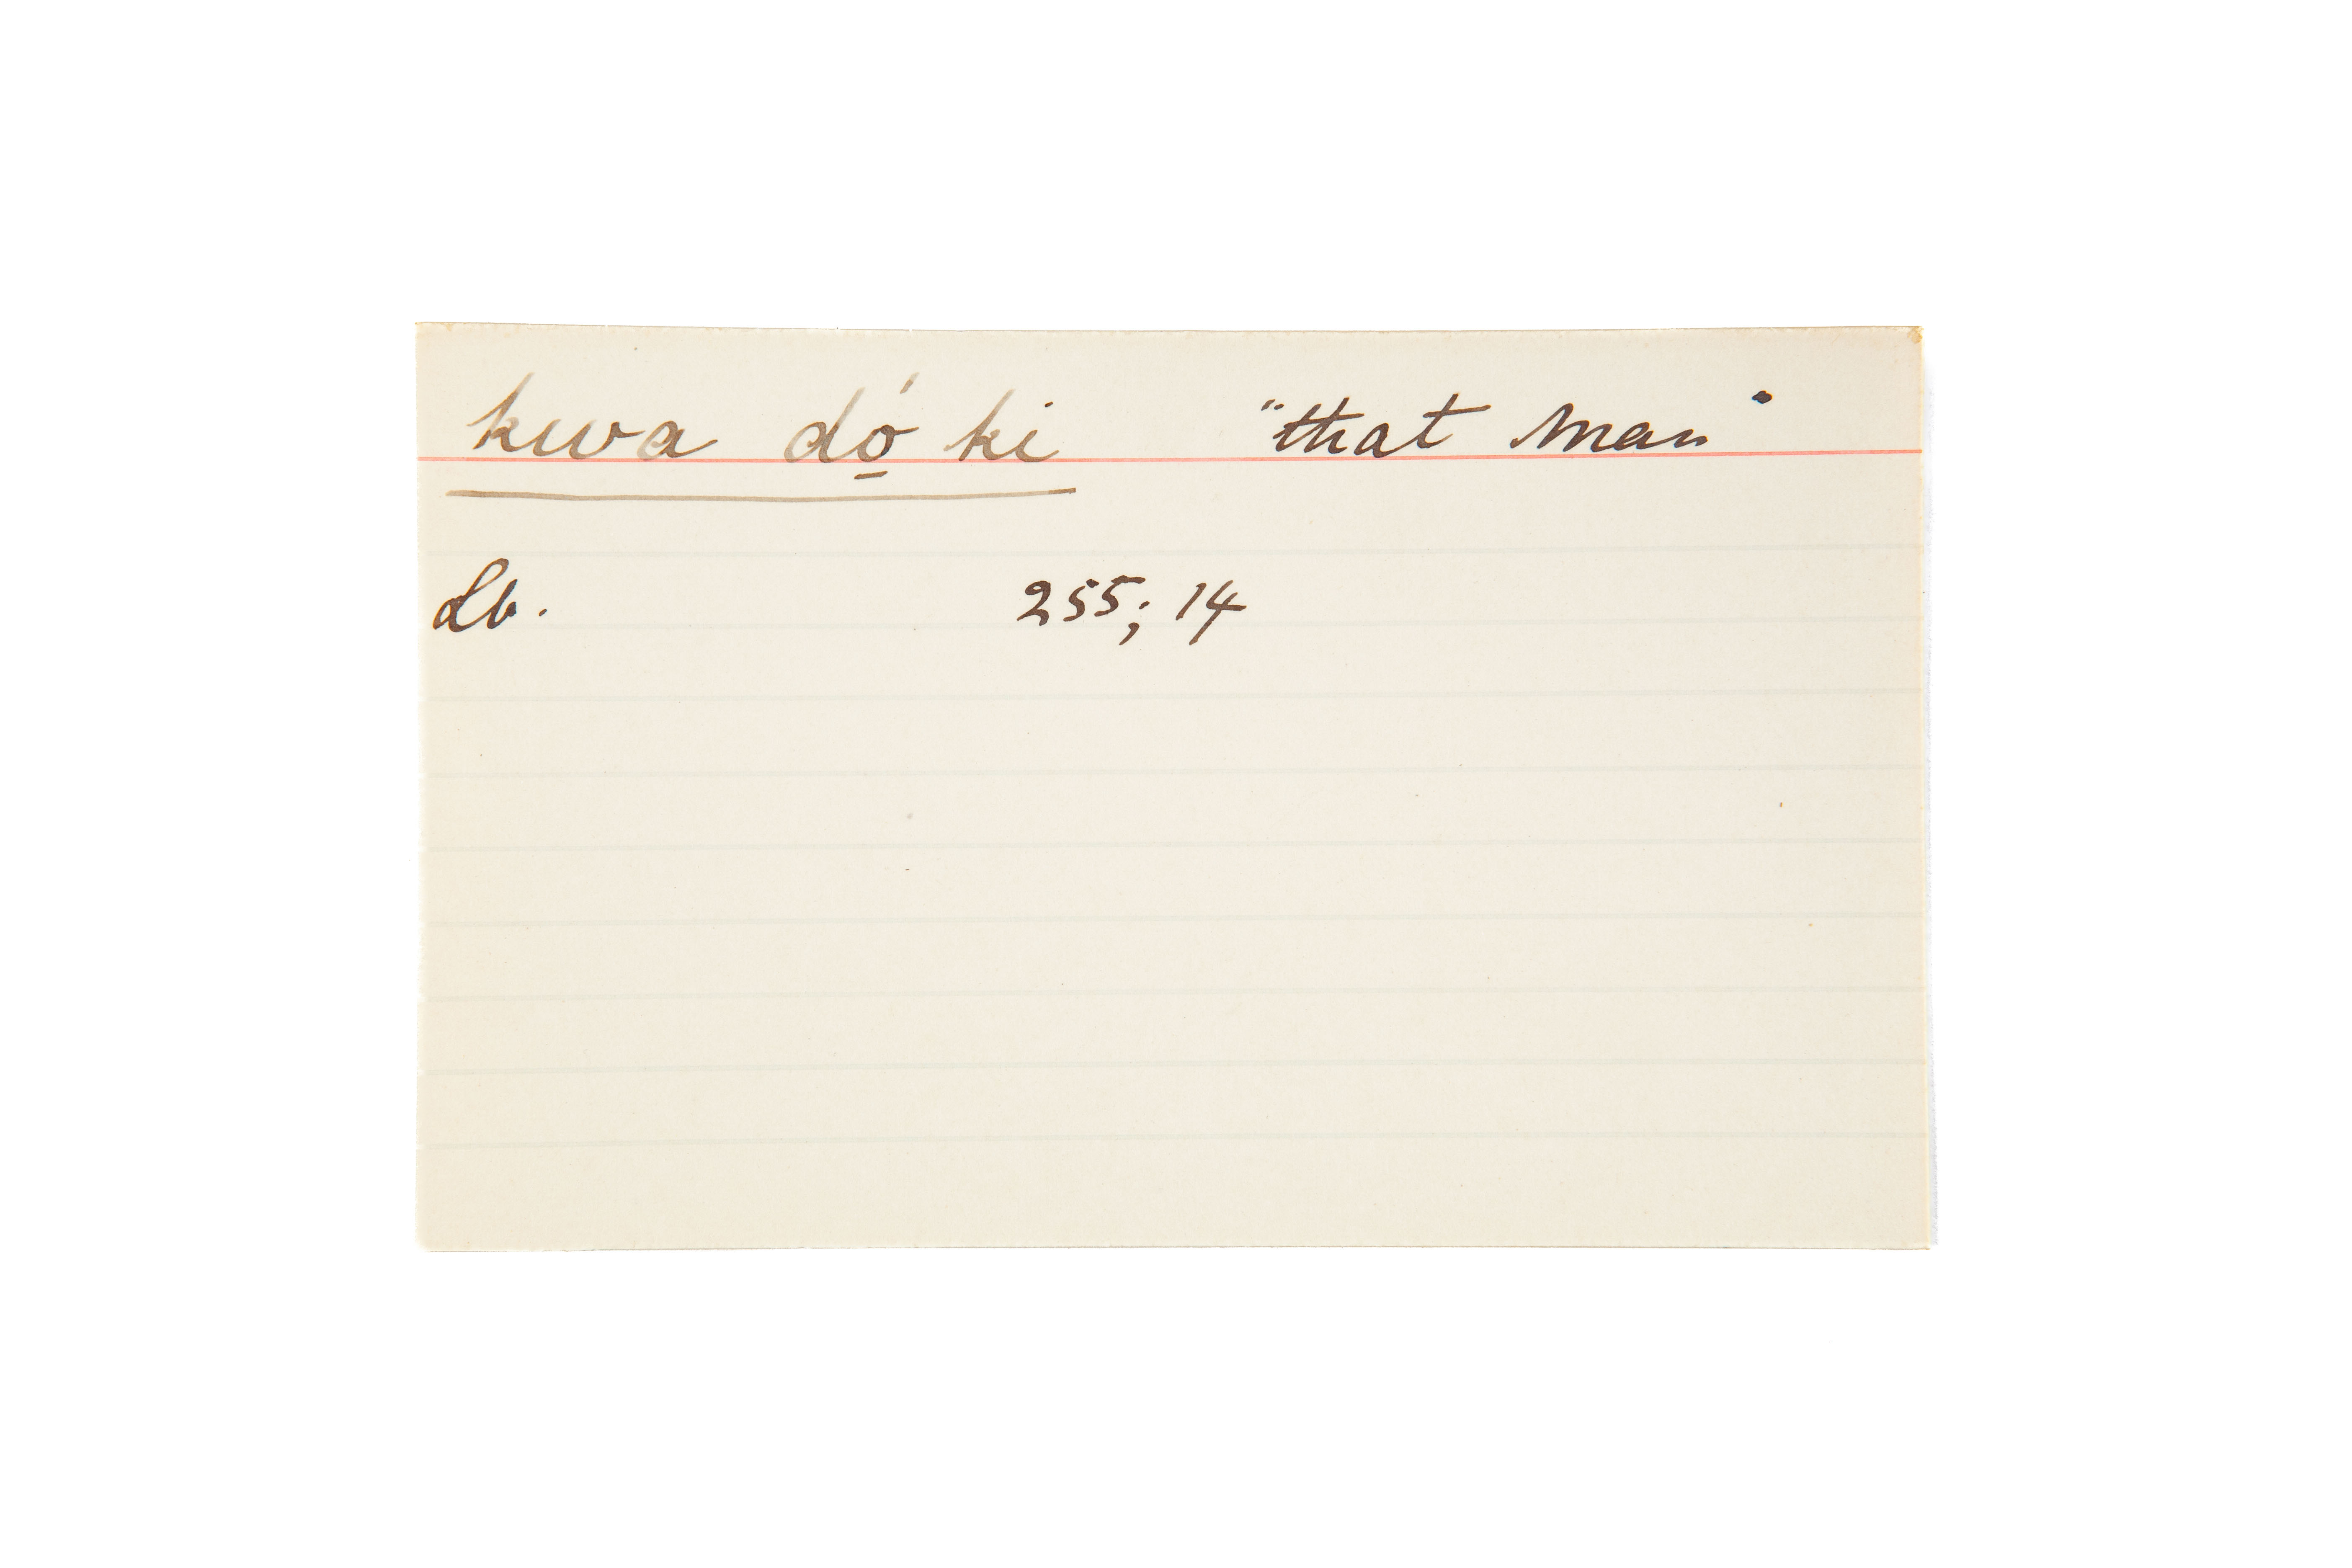 kwa dọ́ ki "that man"
Lb. 255; 14